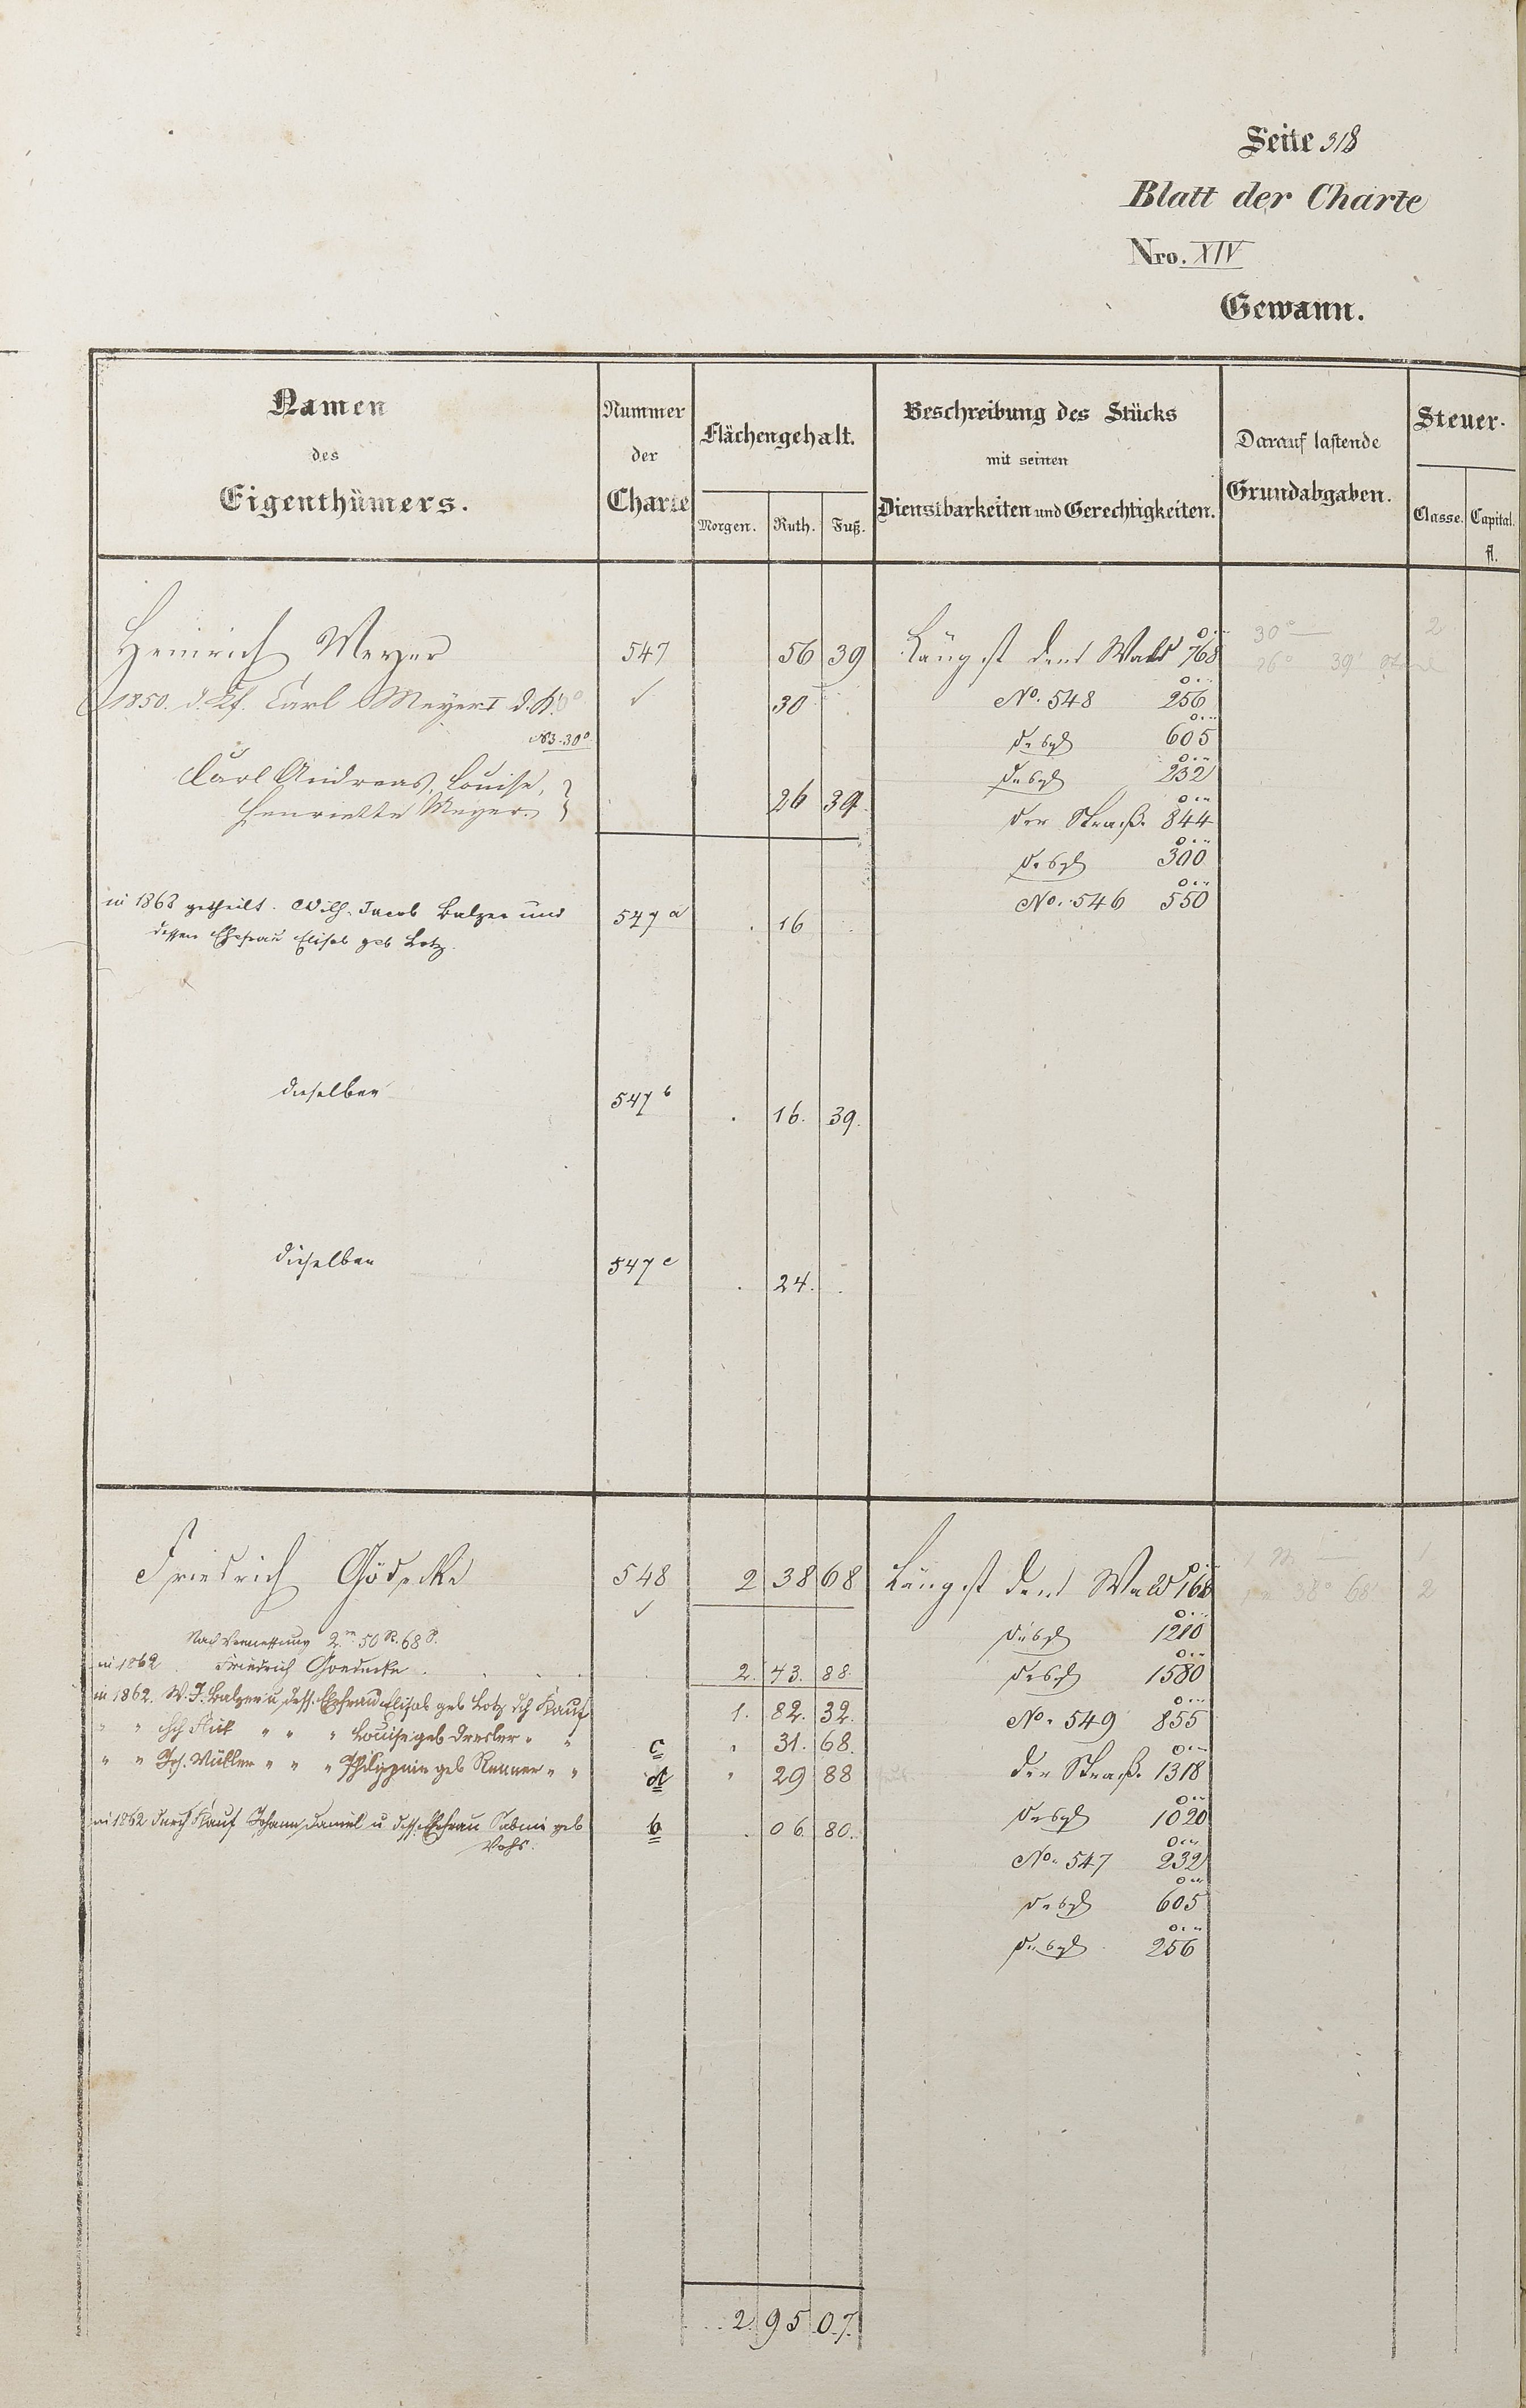 Seite 318
Blatt der Charte
Nro. XIV
Gewann.
Namen des Eigenthümers.
Nummer der Charte
Flächengehalt.
Morgen. Ruth. Fuß.
Beschreibung des Stücks mit seinen Dienstbarkeiten und Gerechtigkeiten.
Darauf lastende Grundabgaben.
Steuer-
Classe. Capital. fl.
Heinrich Meyer 547 56 39 Längst dem Wald 768 30° 2
1850. d. Kf. Carl Meyer I d. K. 30 No. 548 256 26° 39'
No 3. 30° desgl 605
Carl Andreas, Louise, desgl 232
Henriette Meyer. 26 39. der Straße 844
desgl 300
in 1862 getheilt. Wilh. Jacob Balzer und 547 a . 16 No. 546 550
dessen Ehefrau Elisab geb Lotz.
dieselben 547 b . 16. 39.
dieselben 547 c . 24. .
Friedrich Gödecke 548 2 38 68 Längst dem Wald 768 1
Nach Vermessung 2 m 50 R. 68 S. desgl 1210 38° 68' 2
in 1862 Friedrich Goedecke . 2. 43. 88. desgl 1580
in 1862. W. J. Balzer u. dess. Ehefrau Elisab geb Lotz dch Kauf 1. 82. 32. No. 549 855
" " " " " Louise geb Dresler " " c " 31. 68. der Straße 1318
" " Joh. Müller " " " Philippine geb Renner " " d " 29 88 desgl 1020
in 1862 durch Kauf Johann Daniel u. dess. Ehefrau Sabine geb b . 06. 80. No. 547 232
Vohs. desgl 605
desgl 256
2. 95 07.